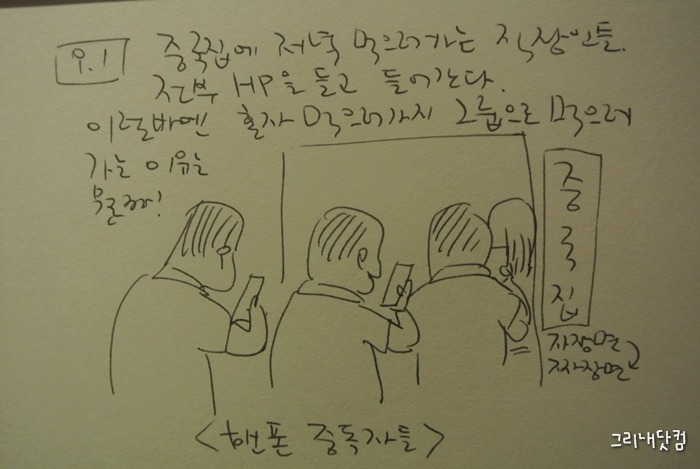 9.1
중국집에 저녁 먹으러가는 직장인들.
전부 HP을 들고 들어간다.
이럴바엔 혼자 먹으러가지 그룹으로 먹으러
가는 이유는
뭘까!
중
국
집
자장면
짜장면
<핸폰 중독자들>
그리내닷컴